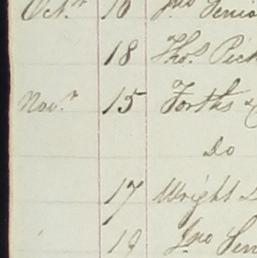 Octr. 16 Jno Senio
18 Thos. Pick
Novr. 15 Forths &
Do
17 Wright &
19 Jno Sen